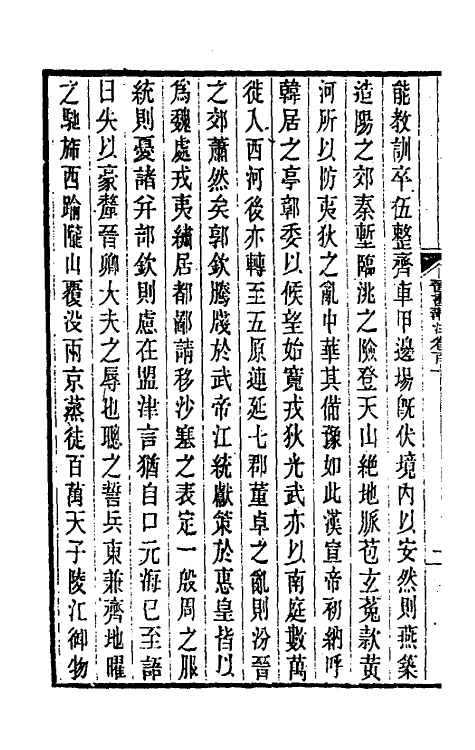 能教訓卒伍整齊車甲邊場既伏境內以安然則燕築
造陽之郊秦塹臨洮之險登天山絕地脈苞玄菟款黃
河所以防夷狄之亂中華其備豫如此漢宣帝初納呼
韓居之亭郭委以候望始寬戎狄光武亦以南庭數萬
徙入西河後亦轉至五原連延七郡董卓之亂則汾晉
之郊蕭然矣郭欽騰牋於武帝江統獻策於惠皇皆以
爲魏處戎夷繡居都鄙請移沙塞之表定一殷周之服
統則憂諸并部欽則慮在盟津言猶自口元海已至語
曰失以豪釐晉卿大夫之辱也聰之誓兵東兼齊地曜
之馳旆西踰隴山覆沒兩京蒸徒百萬天子陵江御物
晉書斠注卷百一
二